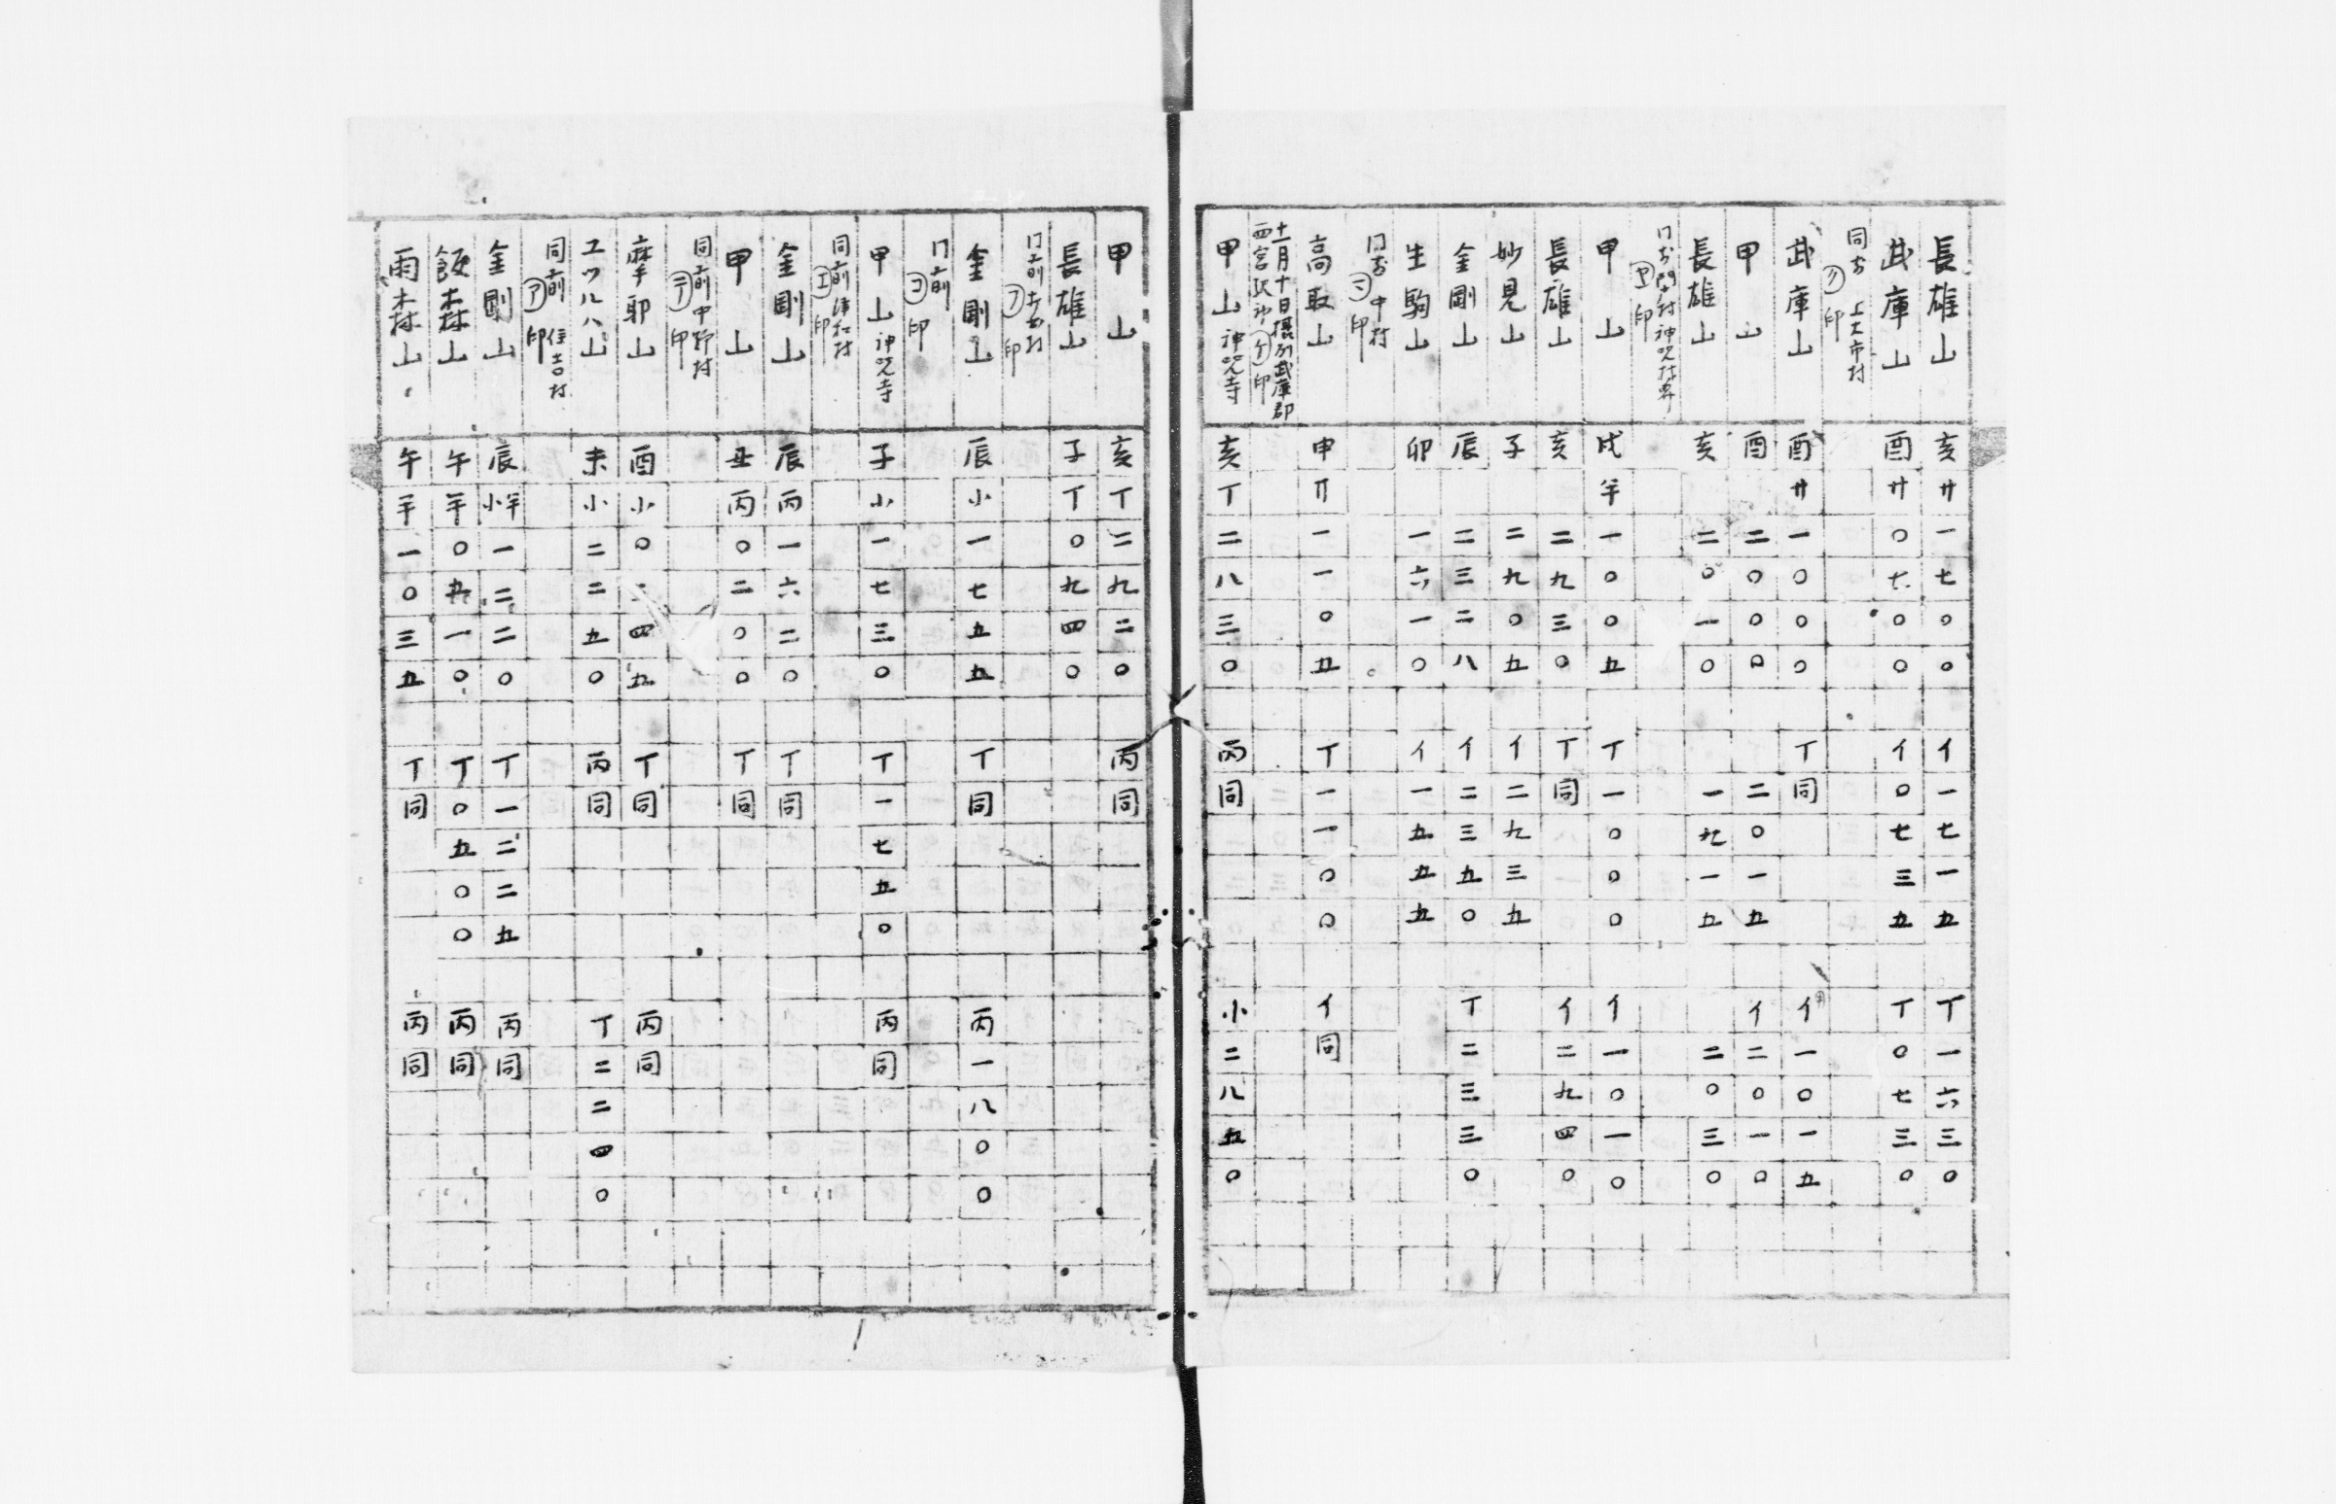 長雄山 亥 廾 一 七 〇 〇 イ 一 七 一 五 丁 一 六 三 〇
武庫山 酉 廾 〇 七 〇 〇 イ 〇 七 三 五 丁 〇 七 三 〇
同 上大市村 印
武庫山 酉 廾 一 〇 〇 〇 丁 同 イ 一 〇 一 五
甲山 酉 二 〇 〇 〇 二 〇 一 五 イ 二 〇 一 〇
長雄山 亥 二 〇 一 〇 一 九 一 五 二 〇 三 〇
印
甲山 戌 半 一 〇 〇 五 丁 一 〇 〇 〇 イ 一 〇 一 〇
長雄山 亥 二 九 三 〇 丁 同 イ 二 九 四 〇
妙見山 子 二 九 〇 五 イ 二 九 三 五
金剛山 辰 二 三 二 八 イ 二 三 五 〇 丁 二 三 三 〇
生駒山 卯 一 六 一 〇 イ 一 五 五 五
中村 印
高取山 申 一 一 〇 五 丁 一 一 〇 〇 イ 同
十一月十日摂州武庫郡
西宮 印
甲山神呪寺 亥 丁 二 八 三 〇 丙 同 小 二 八 五 〇
甲山 亥 丁 二 九 二 〇 丙 同
長雄山 子 丁 〇 九 四 〇
印
金剛山 辰 小 一 七 五 五 丁 同 丙 一 八 〇 〇
门前 コ 印
甲山神呪寺 子 小 一 七 三 〇 丁 一 七 五 〇 丙 同
同前津和村 エ 印
金剛山 辰 丙 一 六 二 〇 丁 同
甲山 丑 丙 〇 二 〇 〇 丁 同
同前中野村 テ 印
摩耶山 酉 小 〇 二 四 五 丁 同 丙 同
エツルハ山 未 小 二 二 五 〇 丙 同 丁 二 二 四 〇
同前住吉村 ア 印
金剛山 辰 小半 一 二 二 〇 丁 一 二 二 五 丙 同
飯森山 午 半 〇 五 一 〇 丁 〇 五 〇 〇 丙 同
雨森山 午 半 一 〇 三 五 丁 同 丙 同